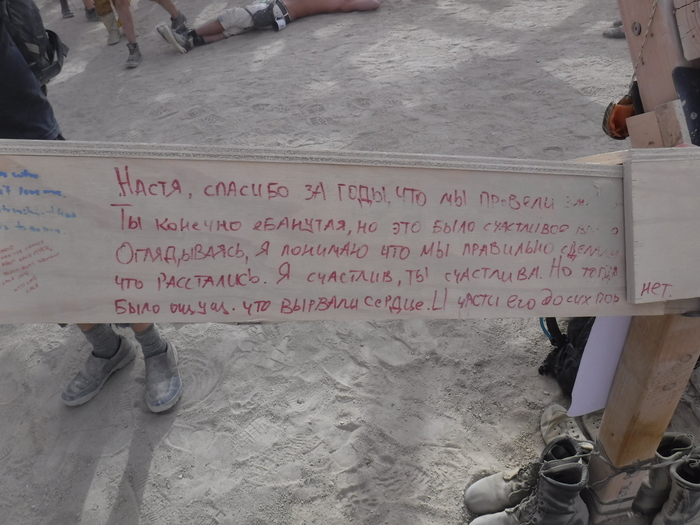 Настя, спасибо за годы, что мы провели вм
Ты конечно ебанутая, но это было счастливое
Оглядываясь, я понимаю что мы правильно сделали
что расстались. Я счастлив, ты счастлива. Но тогда
было ощущ. что вырвали сердце. И части его до сих пор нет.